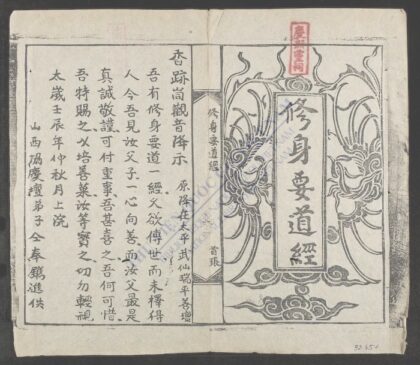 修身要道經
修身要道經
首張
香跡崗觀音降示
原降在太平武仙縣平善壇
吾有修身要道一經久欲傳世而未擇得
人今吾見汝父子一心向善而汝父最是
真誠敬謹可付重事吾甚喜之吾何可惜
吾特賜之以培善菓汝等寶之切勿輕視
太歲壬辰年仲秋月上浣
山西福慶壇弟子仝奉鐫進供